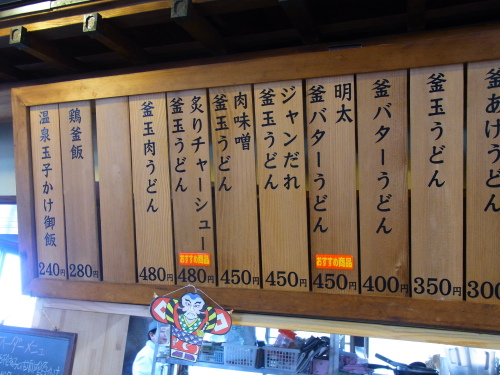 釜あげうどん
300
釜玉うどん
350円
釜バターうどん
400円
明太
釜バターうどん
おすすめ商品
450円
ジャンだれ
釜玉うどん
450円
肉味噌
釜玉うどん
450円
炙りチャーシュー
釜玉うどん
おすすめ商品
480円
釜玉肉うどん
480円
鶏釜飯
280円
温泉玉子かけ御飯
240円